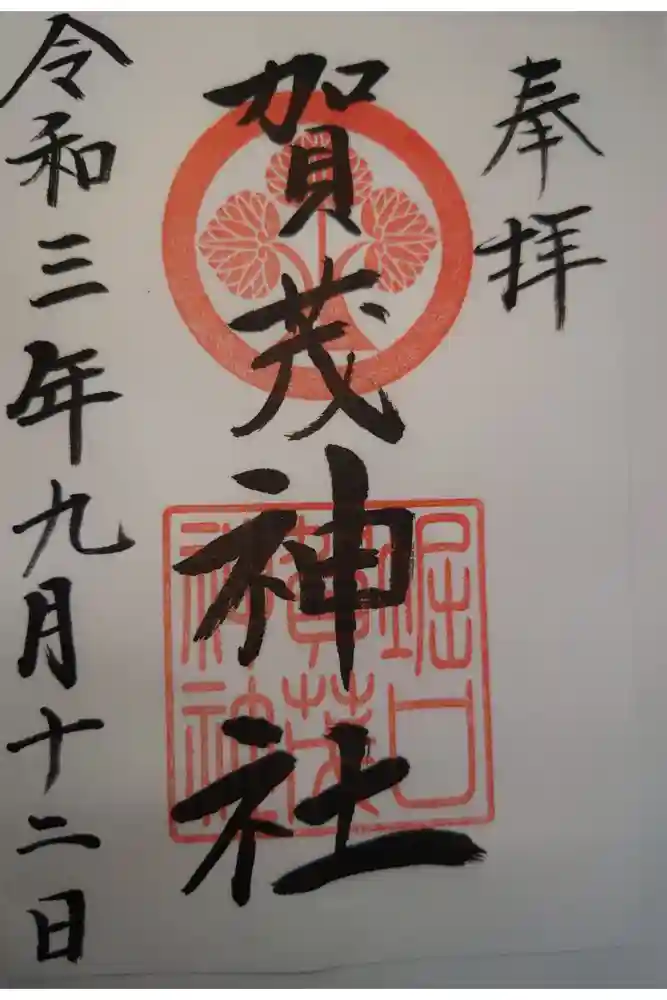 奉拝
賀茂神社
堀口
賀茂
神社
令和三年九月十二日